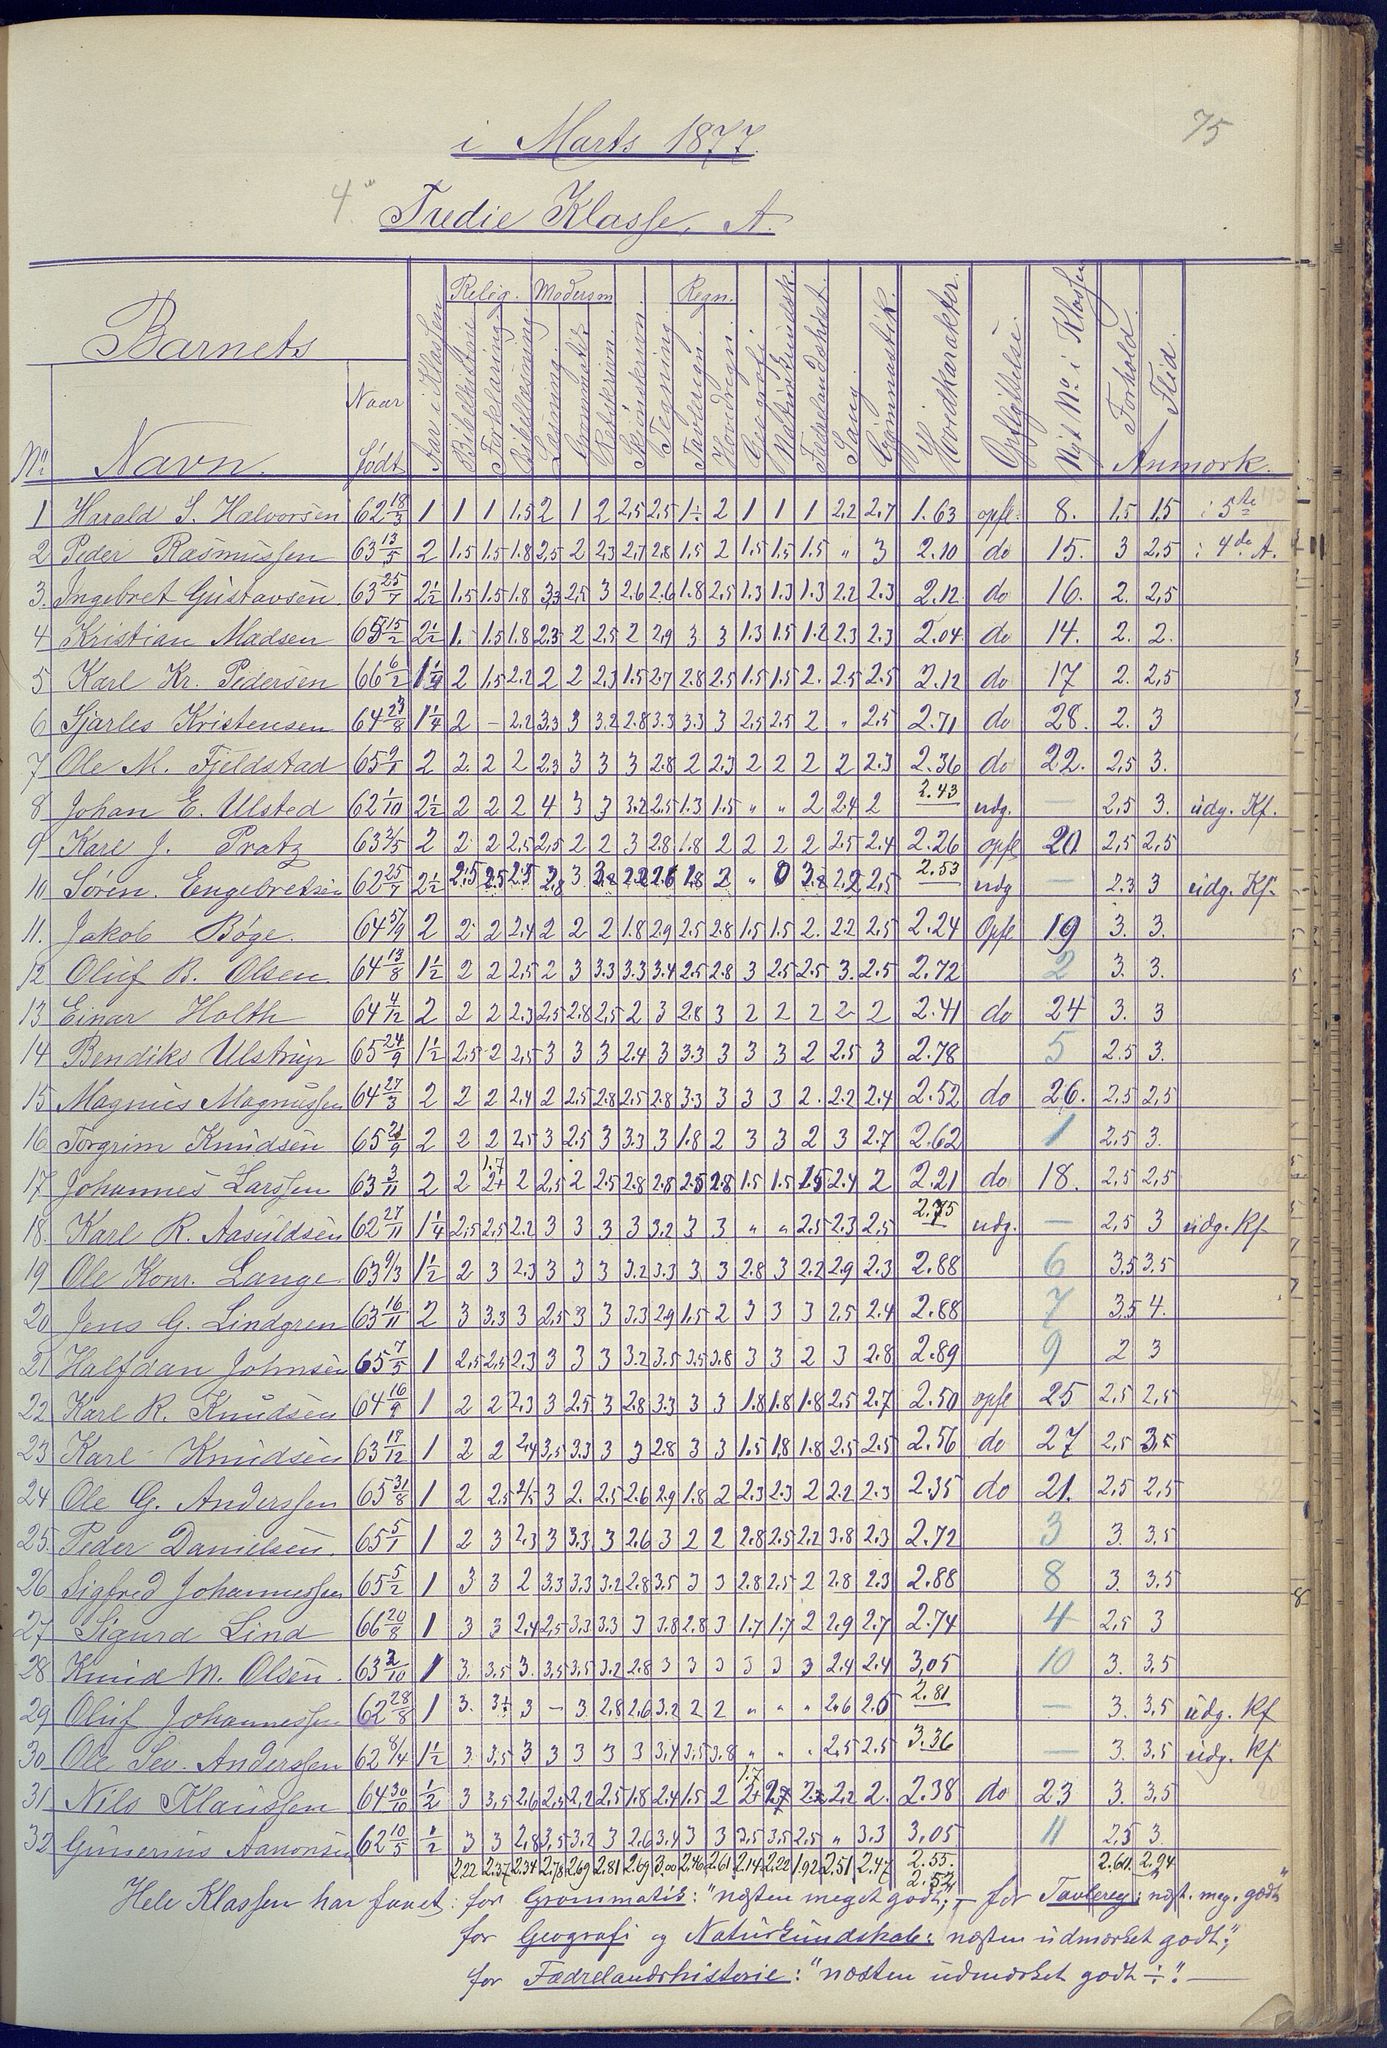 75
i Marts 1877.
Tredie Klasse, A.
Barnets
No Navn. Naar født Aar i Klassen Relig. Bibelhistorie Forklaring Bibellæsning Modersm Læsning Grammatik Retskrivn. Skjönskrivn. Tegning Regn. Tavleregn. Hovdregn. Geografi Naturkundsk. Fædrelandshist. Sang Gymnastik Hovdkarakter. Opflyttelse. Nyt No i Klassen Forhold. Flid. Anmærk.
1 Harald S. Halvorsen 62 18/3 1 1 1 1.5 2 1 2 2,5 2,5 1÷ 2 1 1 1 2.2 2.7 1.63 opfl. 8. 1,5 1,5 i 5te
2 Peder Rasmussen 63 13/5 2 1.5 1.5 1.8 2,5 2 2.3 2.7 2.8 1.5 2 1.5 1.5 1.5 " 3 2.10 do 15. 3 2,5 i 4de A.
3. Ingebret Gustavsen. 63 25/7 2½ 1.5 1.5 1.8 3,3 2,5 3 2.6 2.6 1.8 2.5 1.3 1.3 1.3 2.2 2.3 2.12 do 16. 2. 2,5
4 Kristian Madsen 65 15/2 2½ 1. 1.5 1.8 2.3 2 2.5 2 2,9 3 3 1.3 1.5 1.2 2.3 2.3 2.04. do 14. 2. 2.
5 Karl Kr. Pedersen 66 6/2 1¼ 2 1.5 2.2 2 2 2.3 1.5 2.7 2.8 2.5 1.5 1.5 2. 2.5 2.5 2.12 do 17 2. 2,5
6 Sjarles Kristensen 64 23/8 1¼ 2 – 2.2 3.3 3 3.2 2.8 3.3 3.3 3 2,5 2.5 2 " 2.5 2.71 do 28. 2. 3
7 Ole M. Fjeldstad 65 9/1 2 2. 2 2 2,3 3 3 3 2.8 2 2.3 2 2 2 2 2.3 2.36 do 22. 2,5 3.
8 Johan E. Ulsted 62 1/10 2½ 2 2 2 4 3 3 3.2 2.5 1.3 1.5 " " 2 2.4 2 2.43 udg. — 2,5 3. udg. Kf.
9 Karl J. Pratz 63 3/5 2 2 2 2,5 2,5 2 2 3 2.8 1.8 2 2 2 2 2.5 2.4 2.26 opfl 20 2,5 2,5
10 Søren. Engebretsen 62 25/7 2½ 2.5 2.5 2.5 2,8 3 3.8 2.2 2.6 1.8 2 " 0 3.8 2.2 2,5 2.53 udg — 2.3 3 udg. Kf.
11. Jakob Böge. 64 5/9 2 2 2 2.4 2 2 2 1.8 2.9 2.5 2.8 1.5 1.5 2. 2.2 2,5 2.24 Opfl 19 3. 3.
12 Oluf B. Olsen. 64 13/8 1½ 2 2 2,5 2 3 3.3 3.3 3.4 2.5 2.8 3 2.5 2.5 3. 2.5 2.72 2 3. 3.
13 Einar Holth 64 4/12 2 2 2 2.3 2,5 2.8 2,5 2 3 2.8 3 2 2 2 2 2 2.41 do 24 3. 3
14 Bendiks Ulstrup 65 24/9 1½ 2.5 2 2,5 3 3 3 2.4 3 3.3 3 3 3 2 2,5 3 2.78 5 2.5 3.
15 Magnus Magnussen 64 27/3 2 2 2 2.4 2 2,5 2.8 2.5 2.8 3.3 3 3 3 2. 2.2 2.4 2.52 do 26. 2,5 2,5
16. Torgrim Knudsen 65 21/9 2 2 2 2,5 3 2.5 3 3.3 3 1.8 2 3 3 2 3 2.7 2.62 1 2.5 3.
17. Johannes Larssen 63 3/11 2 2 1.7 2+ 2 2,5 2 2.5 2.8 2.8 2.5 2.8 1.5 1.5 1.5 2.4 2 2.21 do 18. 2,5 2,5
18. Karl R. Aasuldsen 62 27/11 1¼ 2,5 2,5 2.2 3 3 3 3 3.2 3 3 " " 2.5 2.3 2,5 2.75 udg. — 2,5 3 udg. Kf
19 Ole Konr. Lange 63 9/3 1½ 2 3 2.3 3 3 3 3.2 3.3 3 3 2.8 3 2.2 2.9 2.3 2.88 6 3.5 3,5
20 Jens G. Lindgren 63 16/11 2 3 3.3 3 2,5 3 3 3.3 2.9 1.5 2 3 3 3 2.5 2.4 2.88 7 3.5 4.
21 Halfdan Johnsen 65 7/5 1 2,5 2,5 2.3 3 3 3 3.2 3.5 3.5 3.8 3 3 2 3 2.8 2.89 9 2 3
22 Karl R. Knudsen 64 16/9 1 2 2 2,3 3 2.5 3 2.8 3.3 3 3 1.8 1.8 1.8 2.5 2.7 2.50 opfl 25 2,5 2,5
23 Karl Knudsen 63 19/12 1 2 2 2,4 3,5 3.3 3 3 2.8 3 3 1.5 1.8 1.8 2.5 2.5 2.56 do 27 2,5
24 Ole G. Anderssen 65 31/8 1 2 2.5 2,5 3 2. 2.5 2.6 2.9 1.8 2 2.3 2.3 2 2.2 2.3 2.35 do 21. 2,5 2,5
25. Peder Danielsen. 65 5/1 1 2 3 2,3 3 3,3 3 2.6 3 2 2 2.8 2.5 2.2 3.8 2.3 2.72 3 3. 3,5
26 Sigfred Johannessen 65 5/2 1 3 3 2 3.3 3.3 3.2 2.8 3.5 3 3 2.8 2.5 2 2.8 2.3 2.88 8 3. 3,5
27 Sigurd Lind 66 20/8 1 3 3 2.4 2,5 3,3 3.3 3 3.8 2.8 3 1.7 1.7 2 2.9 2.7 2.74 4 2,5 3
28 Knud M. Olsen. 63 2/10 1 3. 3,5 3. 3,5 3,5 3.2 2.8 3 3 3 3 3 3 2.4 2.4 3,05 10 3. 3,5
29 Oluf Johannessen 62 28/8 1 3. 3÷ 3 – 3 2,8 2,6 3.2 2 2 " " " 2.6 2.6 2.81 — 3. 3,5 udg. Kf
30 Ole Sev. Anderssen 62 8/4 1½ 3. 3,5 3 3 3 3 3 3,4 3,5 3.8 " " " 2,5 2.5 3.36 — 3. 3.5 udg. Kf
31 Nils Klaussen 64 30/10 ½ 3 3,5 2.6 2,5 2,2 2.5 1.8 2.4 1.5 2 1.7 2+ 2.7 2,2 2. 2.38 do 23 3. 3,5
32 Gunerius Aanonsen 62 10/5 ½ 3 3 2,8 3,5 3,2 3 2.6 3.4 3 3 3,5 3,5 2,5 " 3.3 3,05 11 2,5 3.
2.22 2.37 2.34 2.78 2.69 2.81 2.69 3.00 2.46 2.61 2.14 2.22 1.92 2.51 2.47 2.55. 2.60. 2.94
2.52
Hele Klassen har faaet: for Grammatik: "næsten meget godt"; – for Tavlereg: næst. meg. godt"
for Geografi og Naturkundskab: næsten udmærket godt";
for Fædrelandshistorie: "næsten udmærket godt ÷". —